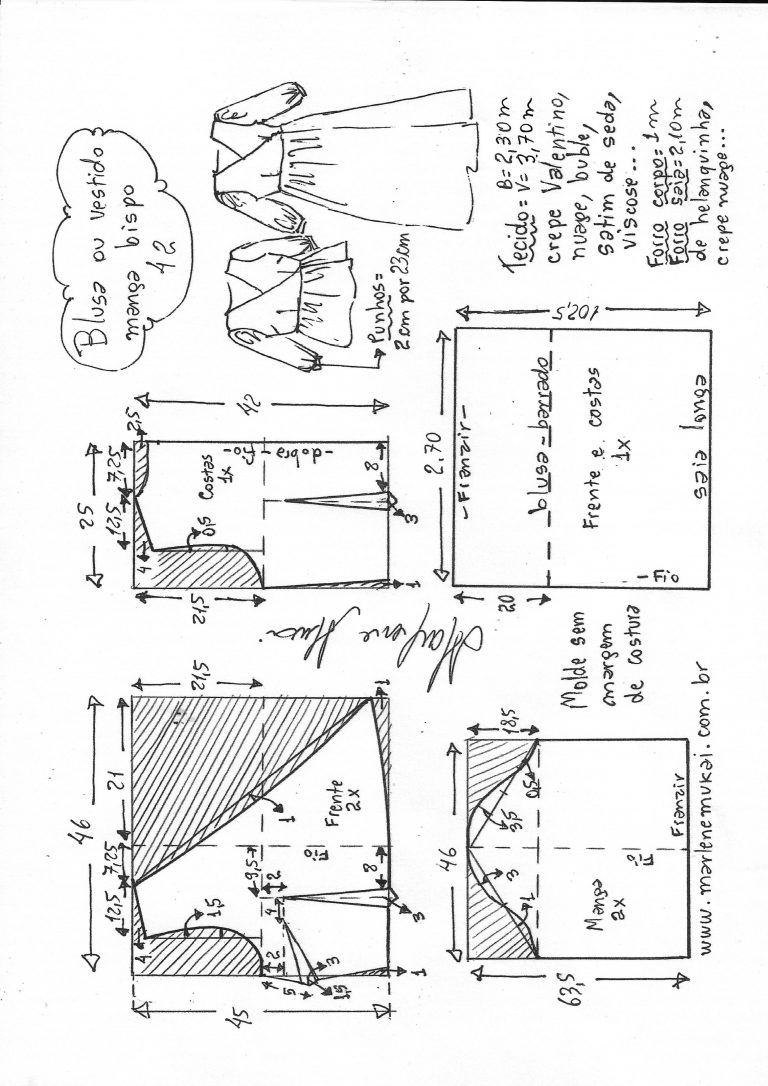 Blusa ou vestido
manga bispo
42
Punhos=
2 cm por 23cm
Tecido = B=2,30m
V= 3,70m
crepe Valentino,
nuage, buble,
setim de seda,
viscose...
Forro corpo=1m
Forro saia=2,10m
de helanquinha,
crepe nuage...
46
12,5
7,25
21
21,5
45
4
1,5
1
Frente
2x
Fio
9,5
2
4
2
5
3
1,5
8
3
1
1
25
12,5
7,25
2,5
42
21,5
4
0,5
Costas
1x
-dobra-
Fio
8
3
1
2.70
102,5
-Franzir-
20
blusa-barrado
Frente e costas
1x
saia longa
Fio
46
18,5
63,5
3
1
3,5
0,5
Manga
2x
Fio
Franzir
Molde sem
margem
de costura
www.marlenemukai.com.br